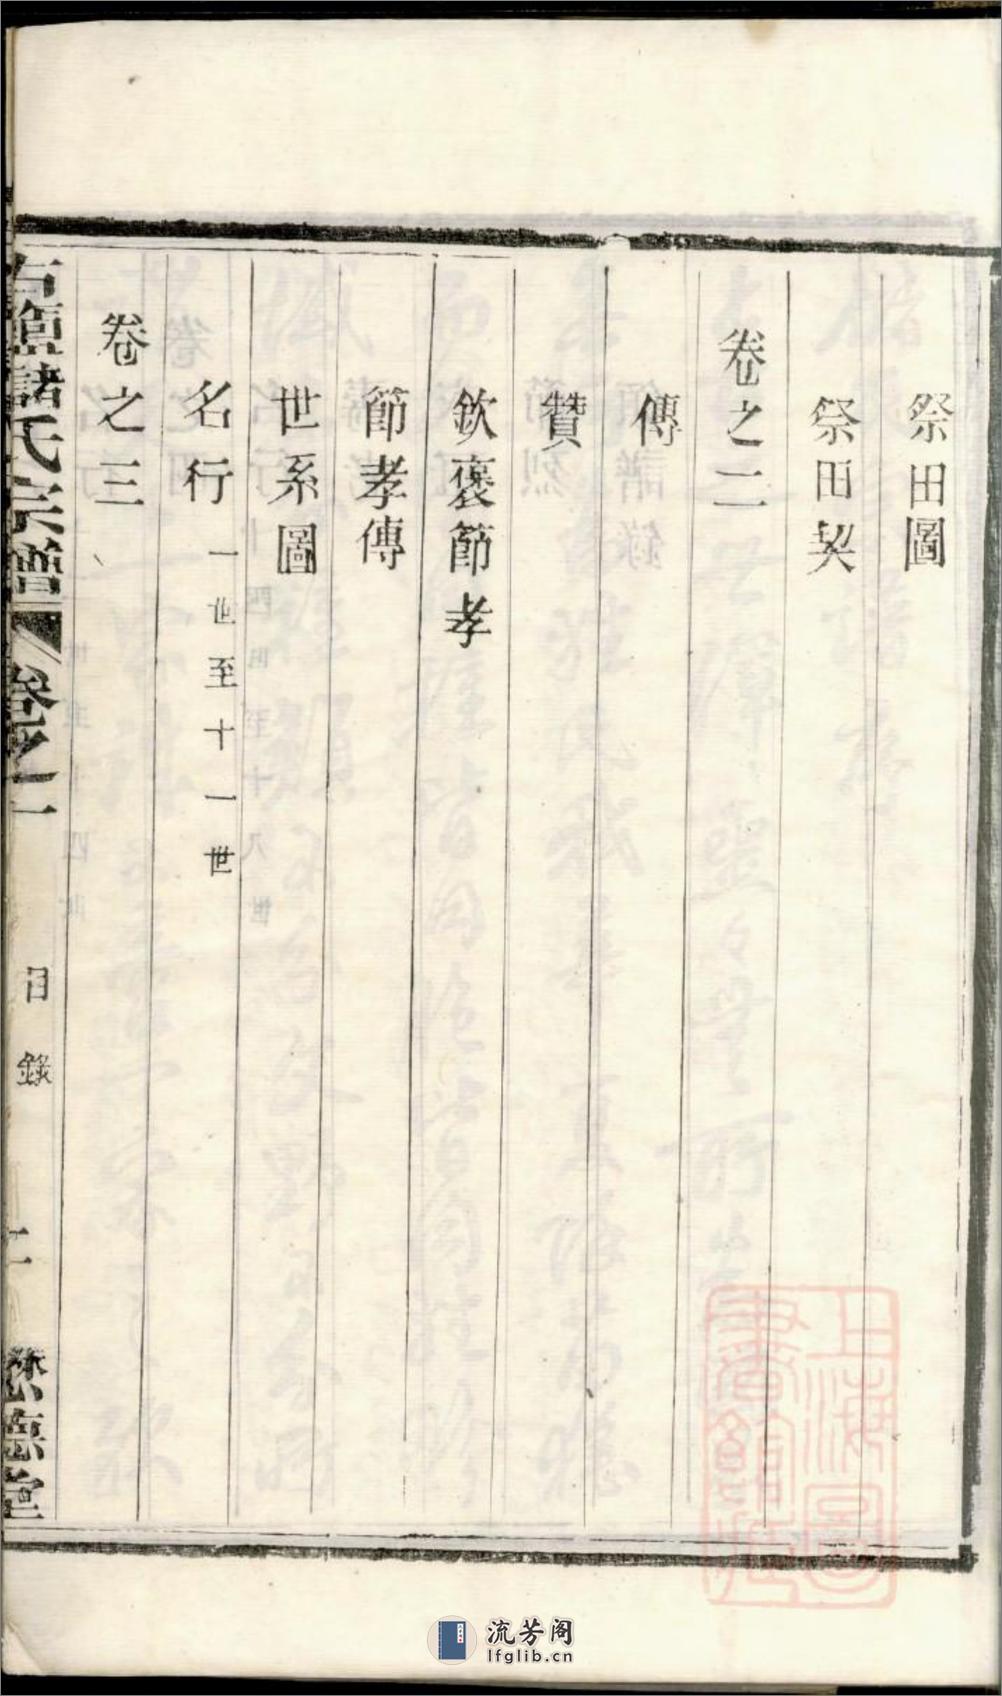 祭田圖
祭田契
卷之二
傳
贊
欽褒節孝
節孝傳
世系圖
名行 一世至十一世
卷之三
諸氏宗譜 卷之一 目錄 二 懋德堂
上海圖書館藏
流芳阁
lfglib.cn